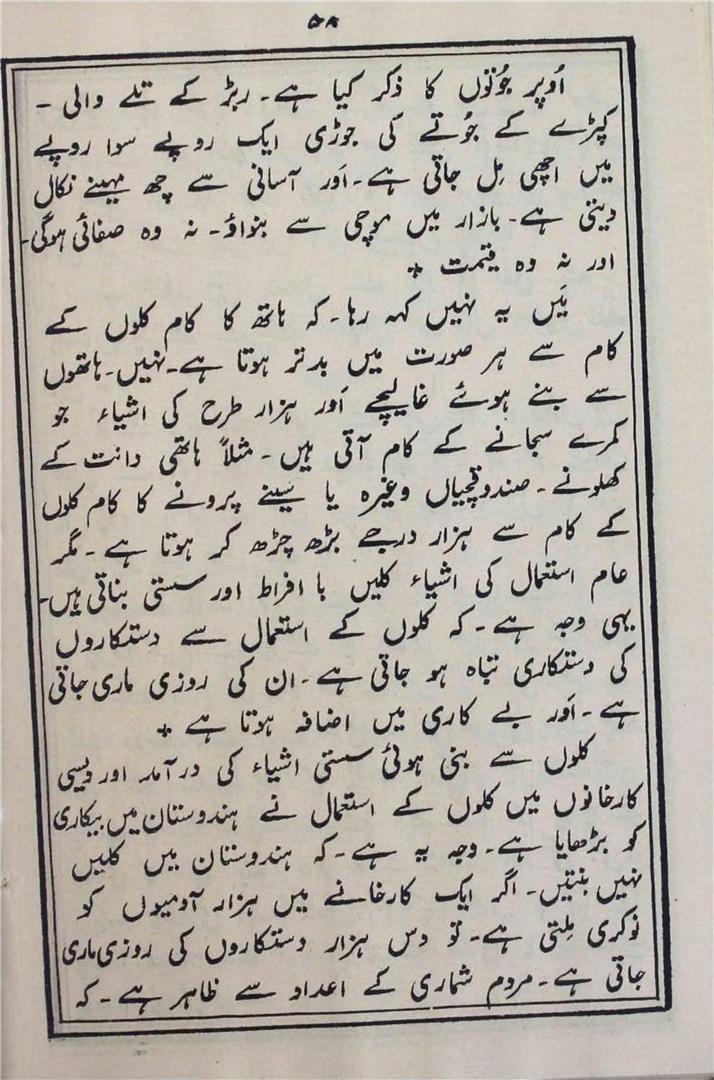 ۵۸
اُوپر جُوتوں کا ذکر کیا ہے۔ ربڑ کے تلے والی -
کپڑے کے جُوتے کی جوڑی ایک روپے سوا روپے
میں اچھی مِل جاتی ہے۔ اَور آسانی سے چھ مہینے نکال
دیتی ہے۔ بازار میں موچی سے بنواؤ۔ نہ وہ صفائی ہوگی۔
اور نہ وہ قیمت +
مَیں یہ نہیں کہہ رہا۔ کہ ہاتھ کا کام کلوں کے
کام سے ہر صورت میں بدتر ہوتا ہے۔ نہیں۔ ہاتھوں
سے بنے ہوئے غالیچے اَور ہزار طرح کی اشیاء جو
کمرے سجانے کے کام آتی ہیں۔ مثلاً ہاتھی دانت کے
کھلونے۔ صندوقچیاں وغیرہ یا سینے پرونے کا کام کلوں
کے کام سے ہزار درجے بڑھ چڑھ کر ہوتا ہے۔ مگر
عام استعمال کی اشیاء کلیں با افراط اور سستی بناتی ہیں۔
یہی وجہ ہے۔ کہ کلوں کے استعمال سے دستکاروں
کی دستکاری تباہ ہو جاتی ہے۔ ان کی روزی ماری جاتی
ہے۔ اَور بے کاری میں اضافہ ہوتا ہے +
کلوں سے بنی ہوئی سستی اشیاء کی در آمد اور دیسی
کارخانوں میں کلوں کے استعمال نے ہندوستان میں بیکاری
کو بڑھایا ہے۔ وجہ یہ ہے۔ کہ ہندوستان میں کلیں
نہیں بنتیں۔ اگر ایک کارخانے میں ہزار آدمیوں کو
نوکری مِلتی ہے۔ تو دس ہزار دستکاروں کی روزی ماری
جاتی ہے۔ مردم شماری کے اعداد سے ظاہر ہے۔ کہ